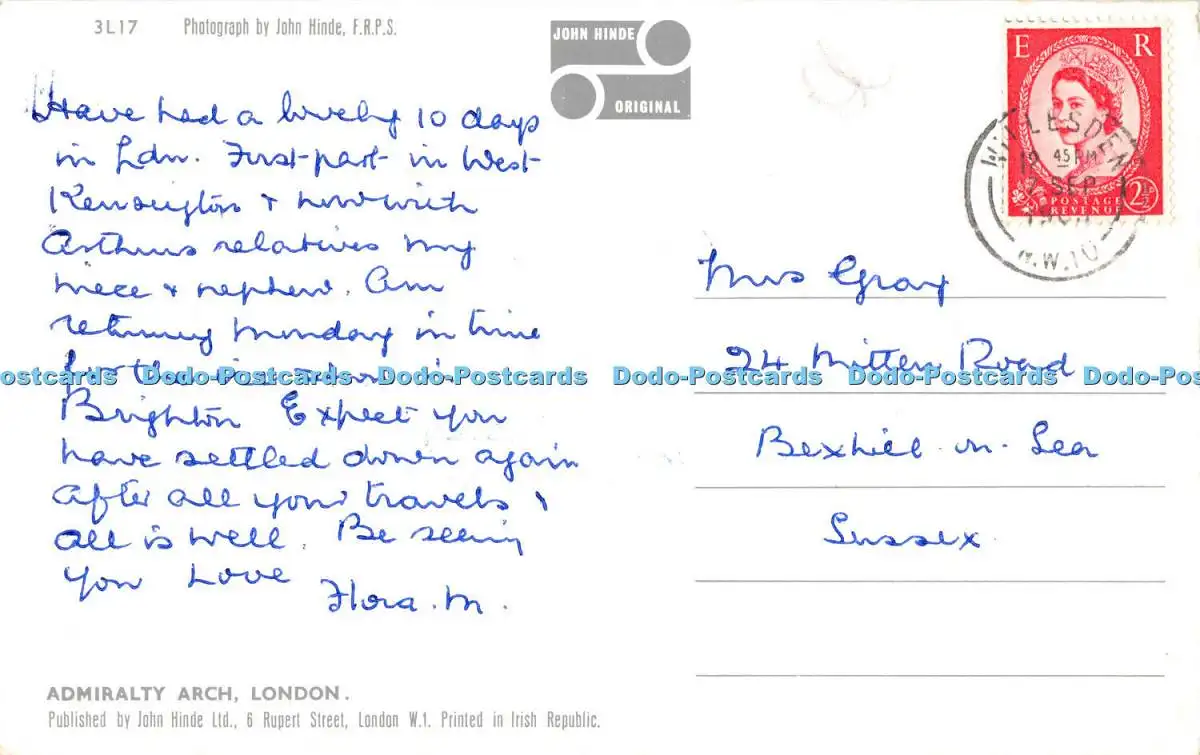 3L17 Photograph by John Hinde, F.R.P.S.
JOHN HINDE
ORIGINAL
E R
POSTAGE
REVENUE
2½D
WILLESDEN
12 45 PM
SEP
N.W.10
Have had a lovely 10 days
in Ldn. First part in West
Kensington & now with
Arthurs relatives my
niece & nephew. Am
returning Monday in time
Brighton Expect you
have settled down again
after all your travels &
all is well. Be seeing
you Love
Flora. M.
Mrs Gray
24 Mitten Road
Bexhill-on-Sea
Sussex
Dodo-Postcards Dodo-Postcards Dodo-Postcards Dodo-Postcards Dodo-Postcards
ADMIRALTY ARCH, LONDON.
Published by John Hinde Ltd., 6 Rupert Street, London W.1. Printed in Irish Republic.